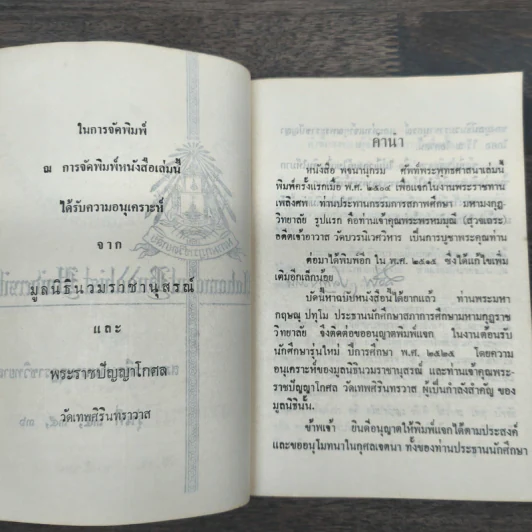 ในการจัดพิมพ์
ณ การจัดพิมพ์หนังสือเล่มนี้
ได้รับความอนุเคราะห์
จาก
มูลนิธินวมราชานุสรณ์
และ
พระราชปัญญาโกศล
วัดเทพศิรินทราวาส
คำนำ
หนังสือ พจนานุกรม ศัพท์พระพุทธศาสนาเล่มนี้
พิมพ์ครั้งแรกเมื่อ พ.ศ. ๒๕๑๔ เพื่อแจกในงานพระราชทาน
เพลิงศพ ท่านประธานกรรมการสภาศึกษา มหามกุฏ
วิทยาลัย รูปแรก คือท่านเจ้าคุณพระพรหมมุณี (สุวจเถระ
อดีตเจ้าอาวาส วัดบวรนิเวศวิหาร เป็นการบูชาพระคุณท่าน
ต่อมาได้พิมพ์อีก ใน พ.ศ. ๒๕๑๕ ซึ่งได้แก้ไขเพิ่ม
เติมอีกเล็กน้อย
บัดนี้หาฉบับหนังสือนี้ได้ยากแล้ว ท่านพระมหา
กฤษณุ ปทุโม ประธานนักศึกษาสภาการศึกษามหามกุฏราช
วิทยาลัย จึงติดต่อขออนุญาตพิมพ์แจก ในงานต้อนรับ
นักศึกษารุ่นใหม่ ปีการศึกษา พ.ศ. ๒๕๒๕ โดยความ
อนุเคราะห์ของมูลนิธินวมราชานุสรณ์ และท่านเจ้าคุณพระ-
ราชปัญญาโกศล วัดเทพศิรินทราวาส ผู้เป็นกำลังสำคัญ ของ
มูลนิธินั้น.
ข้าพเจ้า ยินดีอนุญาตให้พิมพ์แจกได้ตามประสงค์
และขออนุโมทนาในกุศลเจตนา ทั้งของท่านประธานนักศึกษา